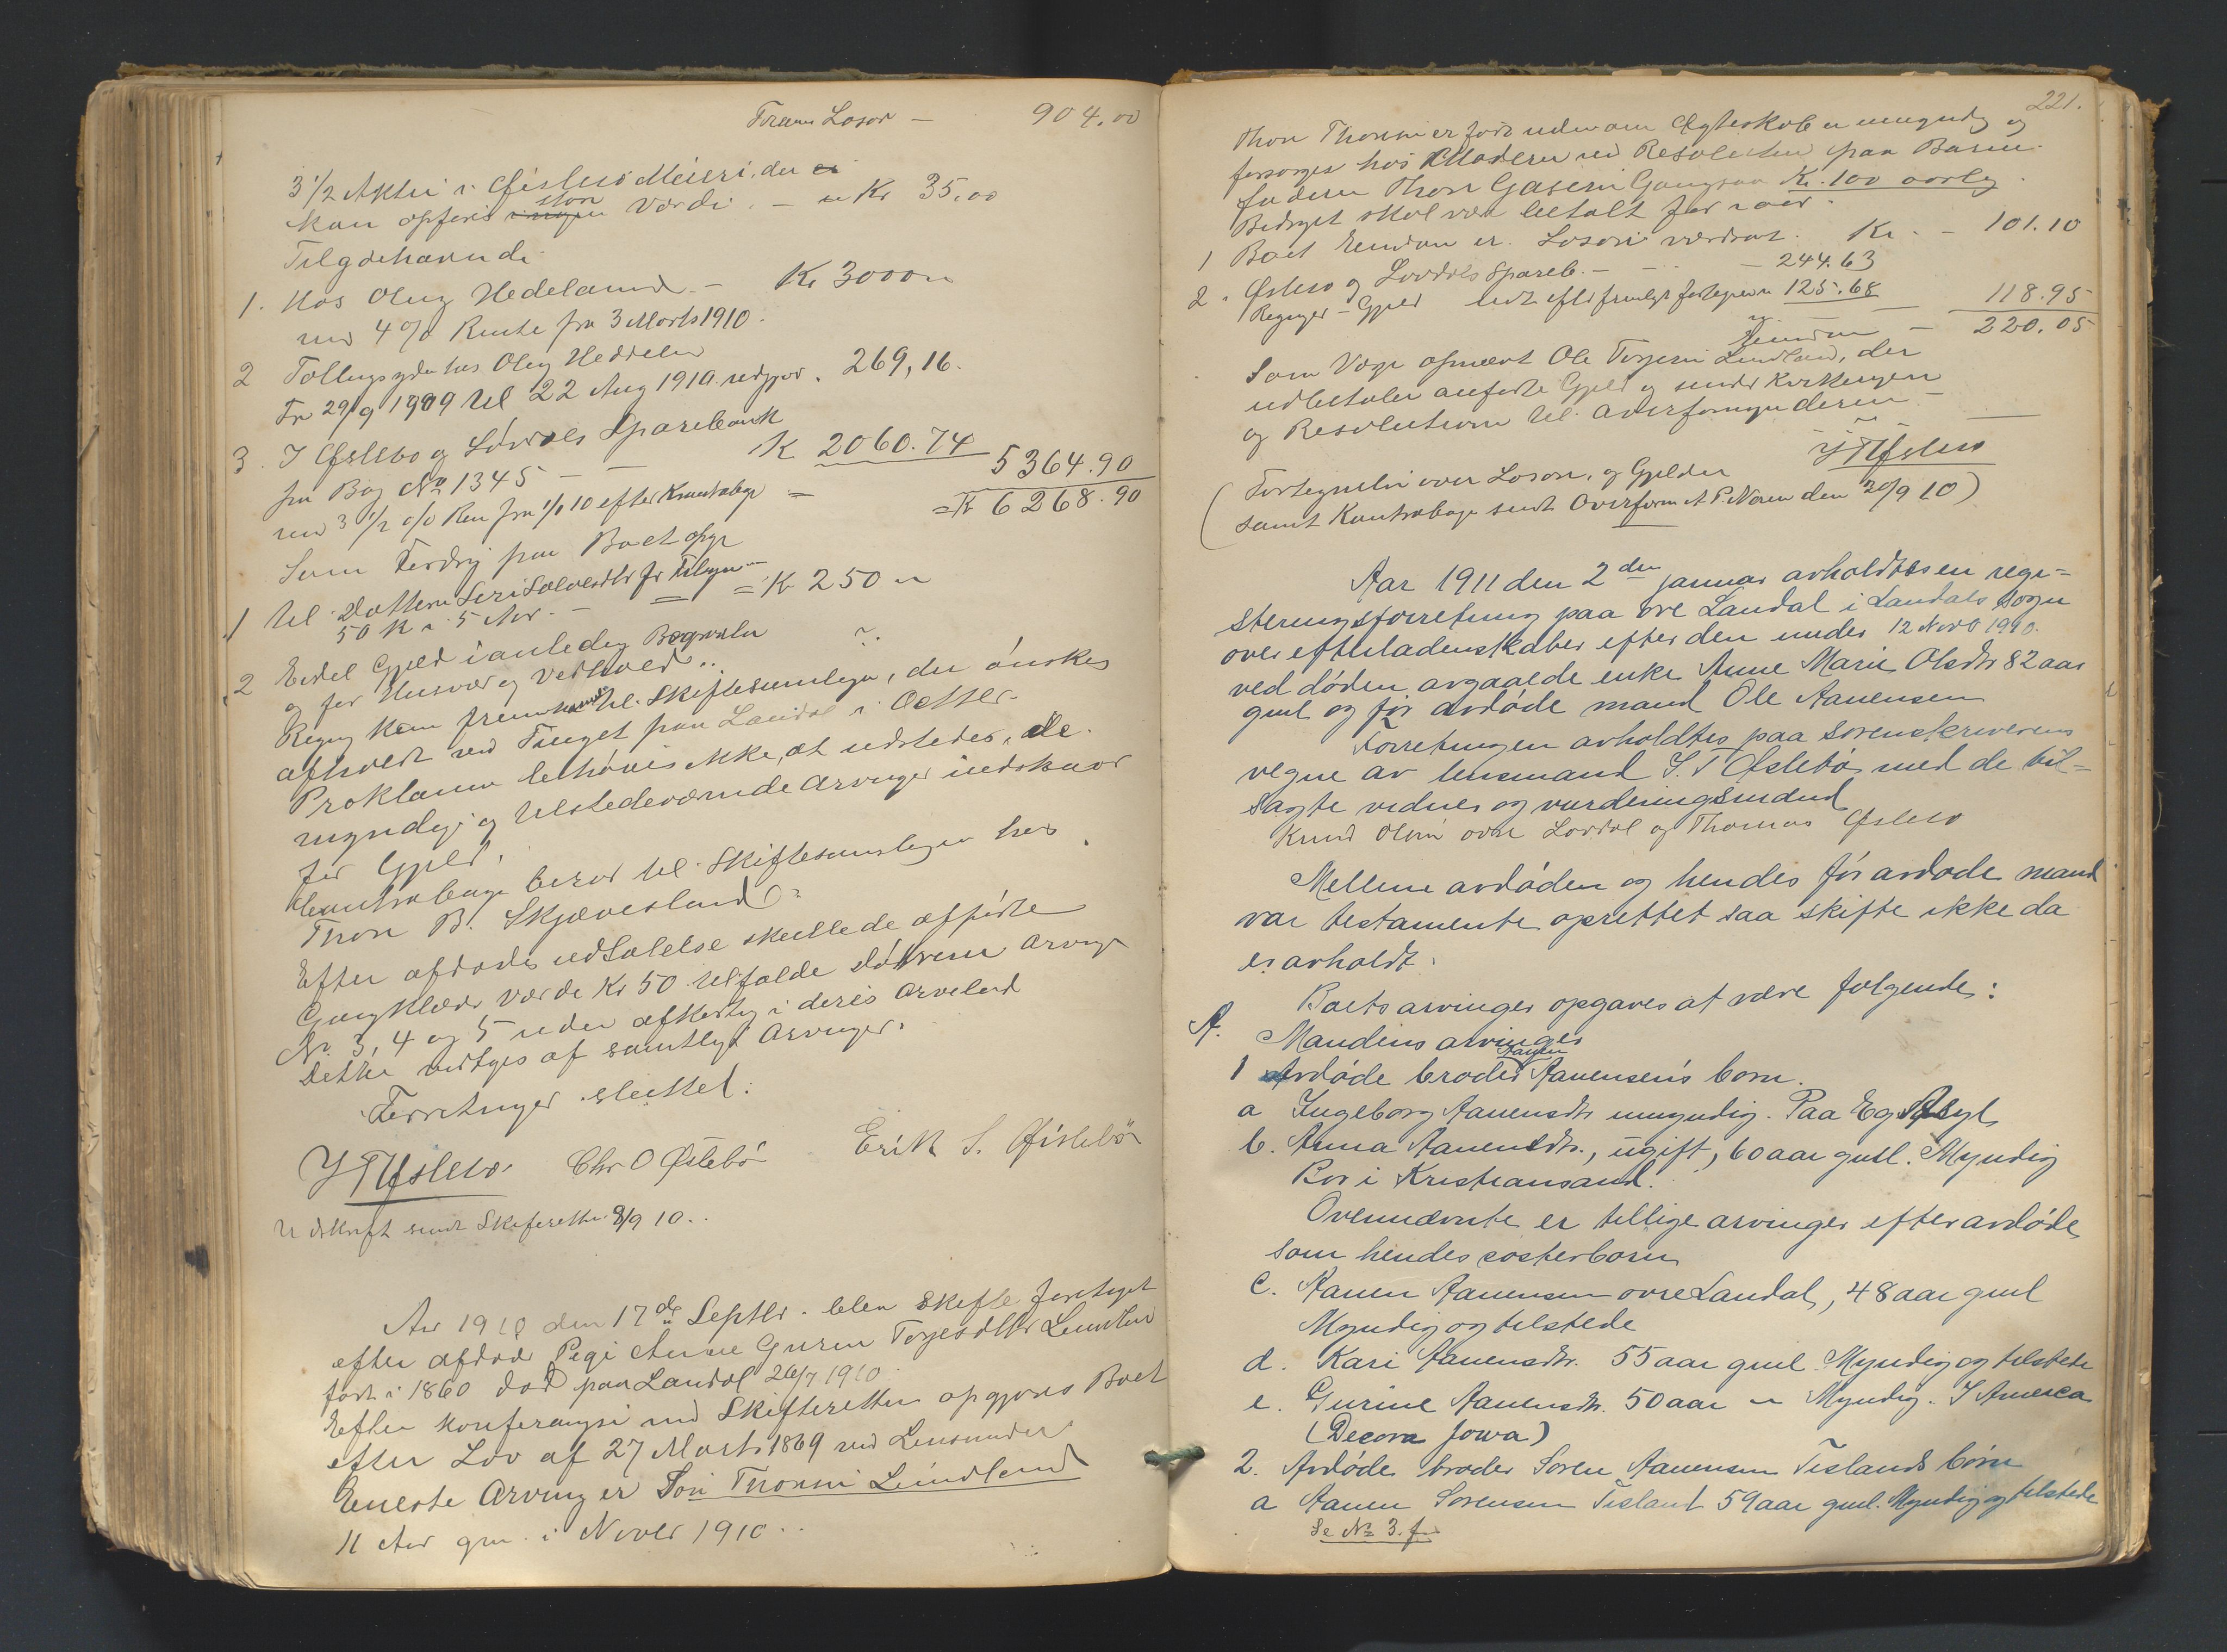 Trans Losor — 904.00
3 1/2 Aktie i Øislebø Meieri, der ei
kan opføres ingen stor Værdi. — " Kr 35.00
Tilgodehavende
1. Hos Oluy Hedeland — Kr 3000 "
med 4 % Rente fra 3 Marts 1910.
2 Tollugsyde hos Oluy Heddeln
Fra 29/9 1909 til 22 Aug 1910 udgjør. 269,16.
3. I Øslebø og Løvdals Sparebank
fra Bog No 1345 — — K 2060.74 5364.90
med 3 1/2 o/o Ren fra 1/1 10 efter Kontrabog = =Kr 6268.90
Som Fordrig paa Boet opgs
1 til Datteren Siri Salvesdtr for Tilsyn
50 Kr i 5 Aar. — = =Kr 250 "
2 Endel Gjeld i anledng Begravelse
og for Husvær og Vedhold..
Regng kan fremkomme til Skiftesamlingen, der ønskes
afholdt ved Tinget paa Laudal i October
Proklama behøves ikke, at udstedes, de
myndige og tilstedeværende Arvinger indestaar
for Gjeld.
Contrabogen beror til Skiftesamlingen hos
Thore B. Skjævesland
Efter afdødes udtalelse skullede opførte
Gangklæder værde Kr 50 tilfalde Døtrene Arvinge
No 3, 4 og 5 uden afkortg i deres Arvelod
Dette vedtges af samtlige Arvinger.
Forretninger sluttet.
S T Øslebø Chr O Øslebø Erik S. Øislebø
Udskrift sendt Skifteretten 8/9 10..
Aar 1910 den 17de Septbr. blev Skifte foretaget
efter afdøde Pige Anne Gurine Torjesdtr Lindland
født i 1860 død paa Laudal 26/7 1910
Efter Konferangse med Skifteretten opgjøres Boet
efter Lov af 27 Marts 1869 ved Lensmanden
Eneste Arving er Søn Thorini Lindland
11 Aar gm. i Novbr 1910..
221.
Thore Thorini er født udenom Ægteskab er umyndig og
forsørges hos Moderen ved Resolution paa Barne-
faderen Thore Gasseni Gangsaa Kr. 100 aarlig.
Bidraget skal være betalt for i aar.
1 Boet Eiendom er Losøre værdsat. Kr. — 101.10
2. Øslebø og Løvdals Spareb. — — 244.63
Regnger — Gjeld indt. efter fremlagt fortegnelse 125.68 118.95
Eiendom — 220.05
Som Værge opnævnt Ole Torjesen Lindland, der
udbetaler anførte Gjeld og sender Kvitteringen
og Resolutionen til Overformynderen —
S T Øslebø
(Fortegnelse over Losøre, og Gjelden
samt Kontrabogen sendt Overform A. P. Noren den 20/9 10)
Aar 1911 den 2den januar avholdtes en regi=
steringsforretning paa øvre Laudal i Laudals sogn
over efterladenskaber efter den under 12 Novb 1910.
ved døden avgaaede enke Anne Marie Olsdtr 82 aar
gml og før avdøde mand Ole Aanensen
Forretningen avholdtes paa sorenskriverens
vegne av lensmand S. T Øslebø, med de til=
sagte vidner og vurderingsmænd
Knud Olsen øvre Lovdal og Thomas Øslebø
Mellem avdøden og hendes før avdøde mand
var testamente oprettet saa skifte ikke da
er avholdt.
Boets arvinger opgaves at være følgende:
A. Mandens arvinger
1 Avdøde broder Aanen Aanensen's born.
a Ingeborg Aanensdtr umyndig. Paa Eg Asyl
b. Anna Aanensdtr., ugift, 60 aar guel. Myndig
Bor i Kristiansand.
Ovennævnte er tillige arvinger efter avdøde
som hendes søsterborn
c. Aanen Aanensen øvre Laudal, 48 aar guel
Myndig og tilstede
d. Kari Aanensdtr. 55 aar guel Myndig og tilstede
e. Gurine Aanensdtr. 50 aar " Myndig. I America
(Decora Jowa)
2. Avdøde broder Soren Aanensen Tislands børn
a Aanen Sørensen Tisland 59 aar guel. Myndig og tilstede
Se No 3. f.